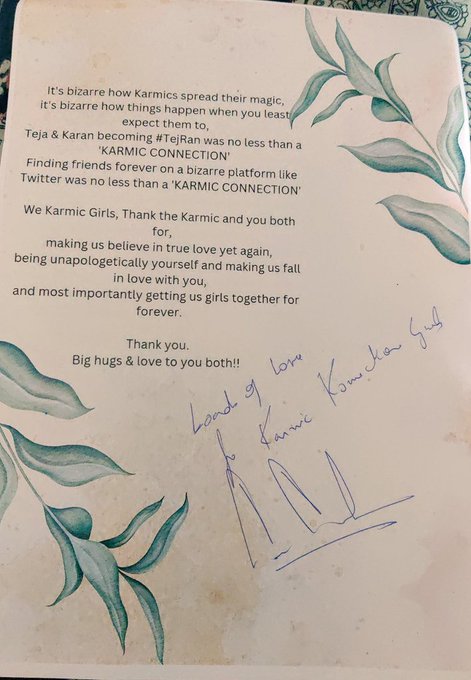 It's bizarre how Karmics spread their magic,
it's bizarre how things happen when you least
expect them to,
Teja & Karan becoming #TejRan was no less than a
'KARMIC CONNECTION'
Finding friends forever on a bizarre platform like
Twitter was no less than a 'KARMIC CONNECTION'
We Karmic Girls, Thank the Karmic and you both
for,
making us believe in true love yet again,
being unapologetically yourself and making us fall
in love with you,
and most importantly getting us girls together for
forever.
Thank you.
Big hugs & love to you both!!
Loads of love
Karmic Girls